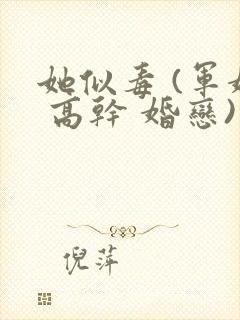 她似毒(軍
高幹 婚戀)
倪萍